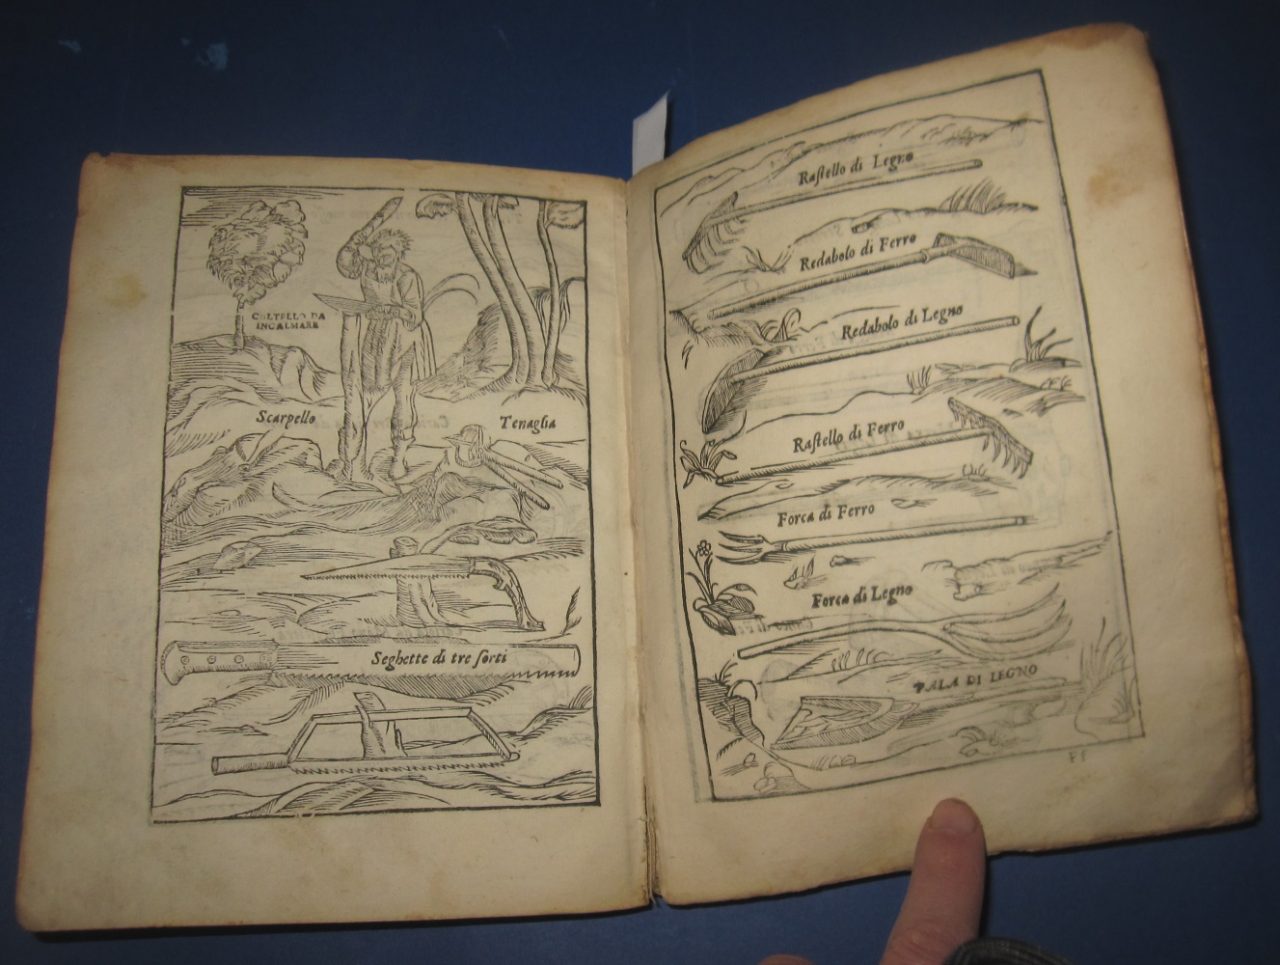 COLTELLO DA
INCALMARE
Scarpello
Tenaglia
Seghette di tre ſorti
Raſtello di Legno
Redabolo di Ferro
Redabolo di Legno
Raſtello di Ferro
Forca di Ferro
Forca di Legno
PALA DI LEGNO